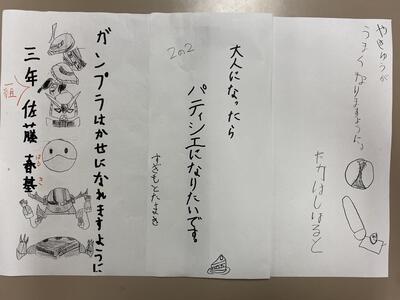 やきゅうが
うまくなりますように。
たかはしはると
2の2
大人になったら
パティシエになりたいです。
すぎもとたまき
ガンプラはかせになれますように
三年 佐藤 春基
一組
はる き